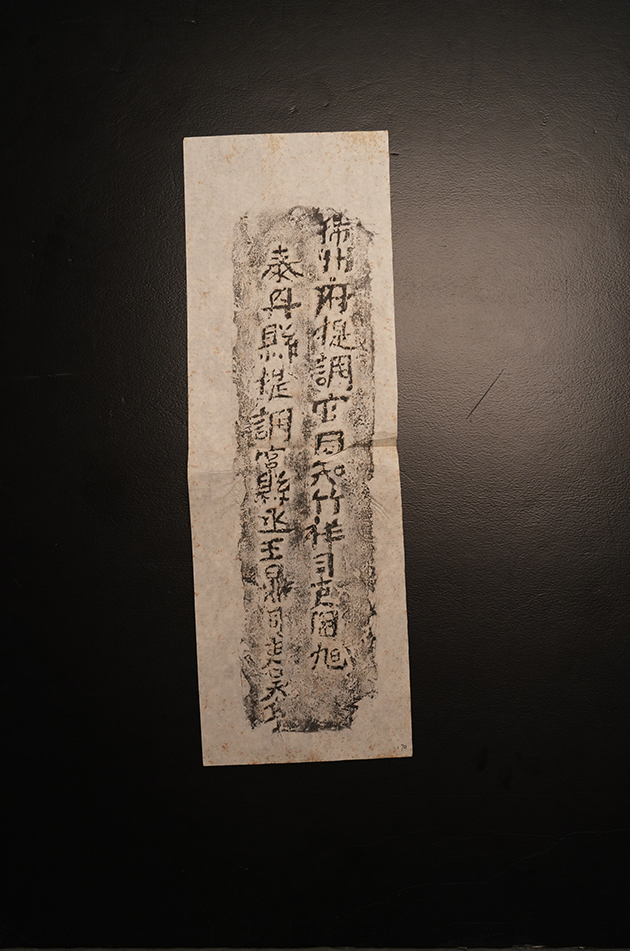 州府提調官同知竹祥司吏周旭
泰縣提調官縣丞王鼎司吏吴